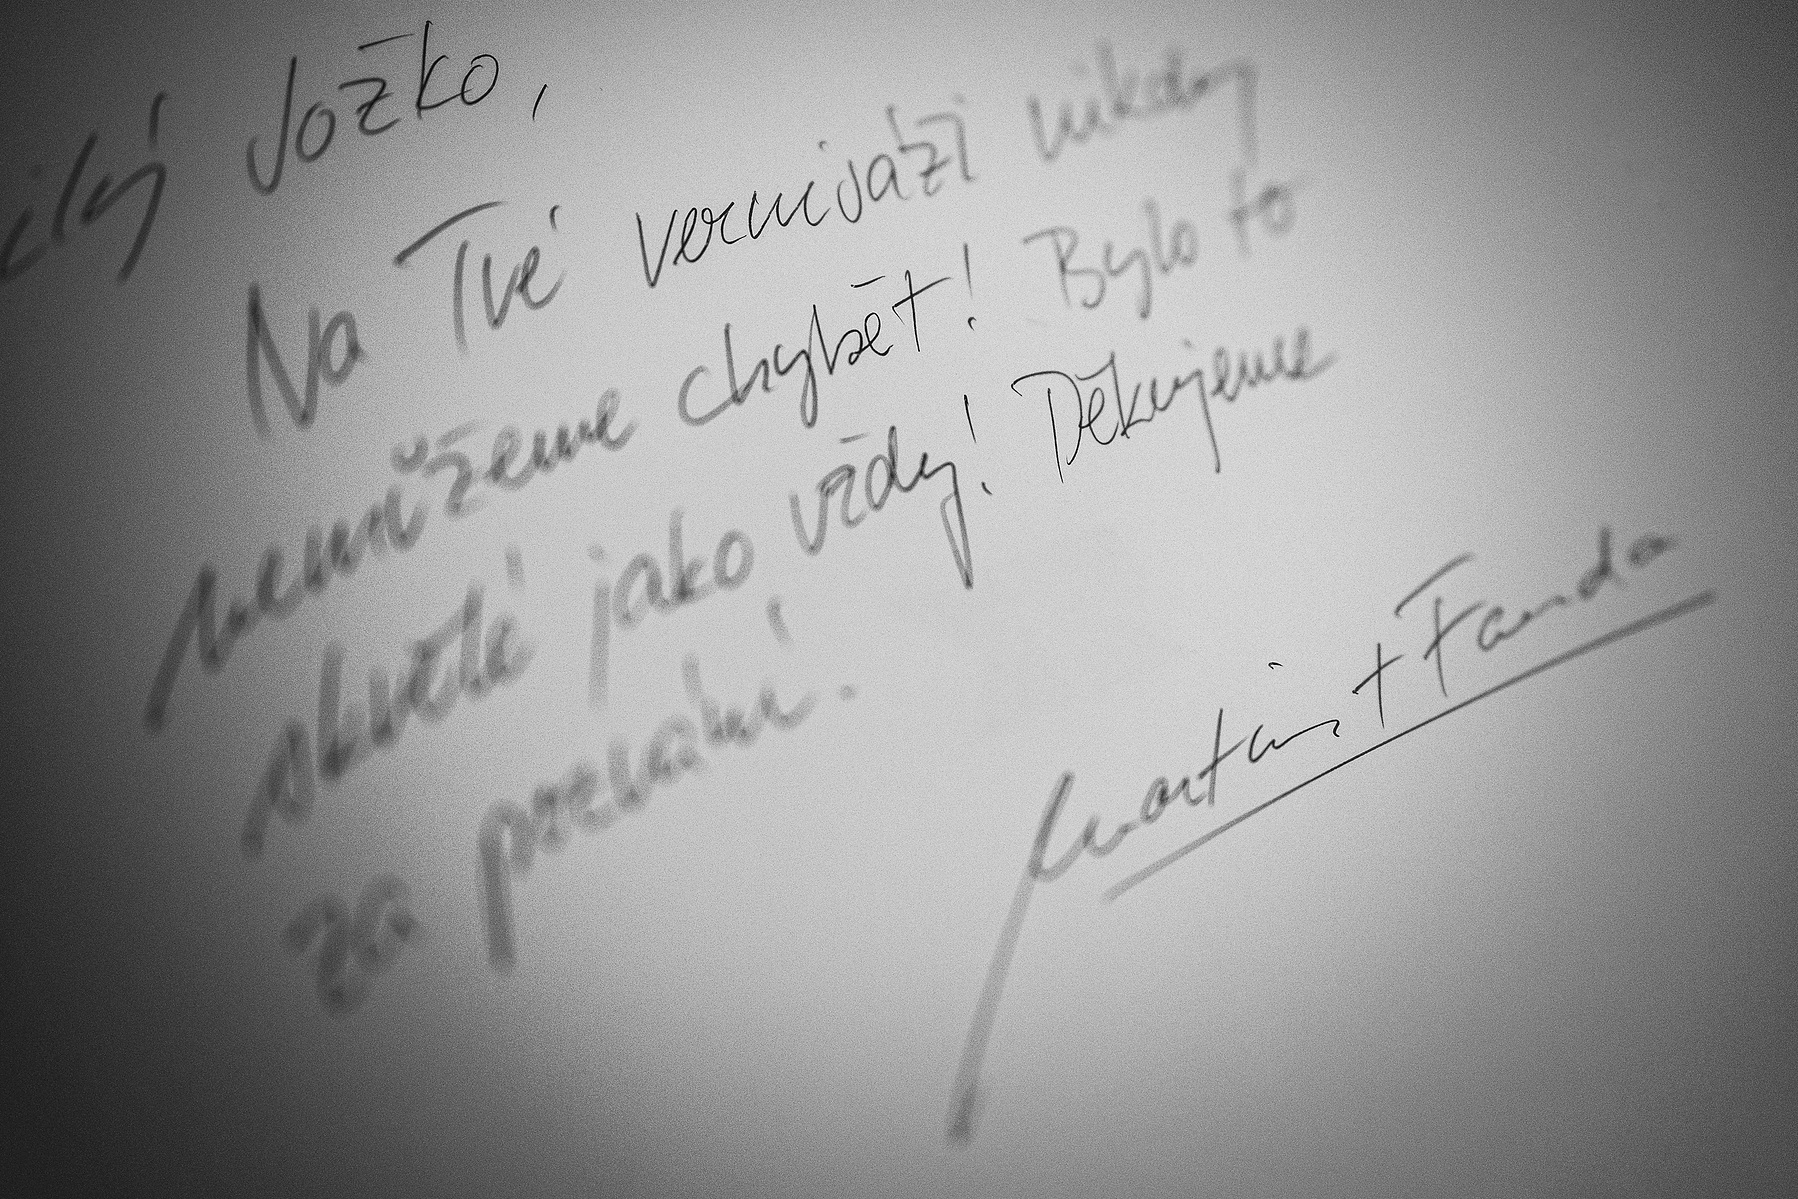 ilý Jožko,
Na Tvé vernisáži nikdy
nemůžeme chybět! Bylo to
skvělé jako vždy! Děkujeme
za pozvání.
Martin + Fanda